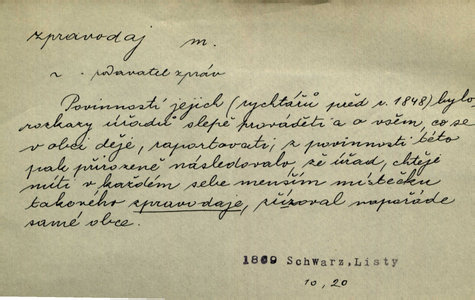 zpravodaj m.
~ . podavatel zpráv
Povinností jejich (rychtářů před r. 1848) bylo
rozkazy úřadů slepě prováděti a o všem, co se
v obci děje, raportovati; z povinnosti této
pak přirozeně následovalo, že úřad, chtěje
míti v každém sebe menším místečku
takového zpravodaje, zřizoval napořáde
samé obce.
1869 Schwarz, Listy
10, 20